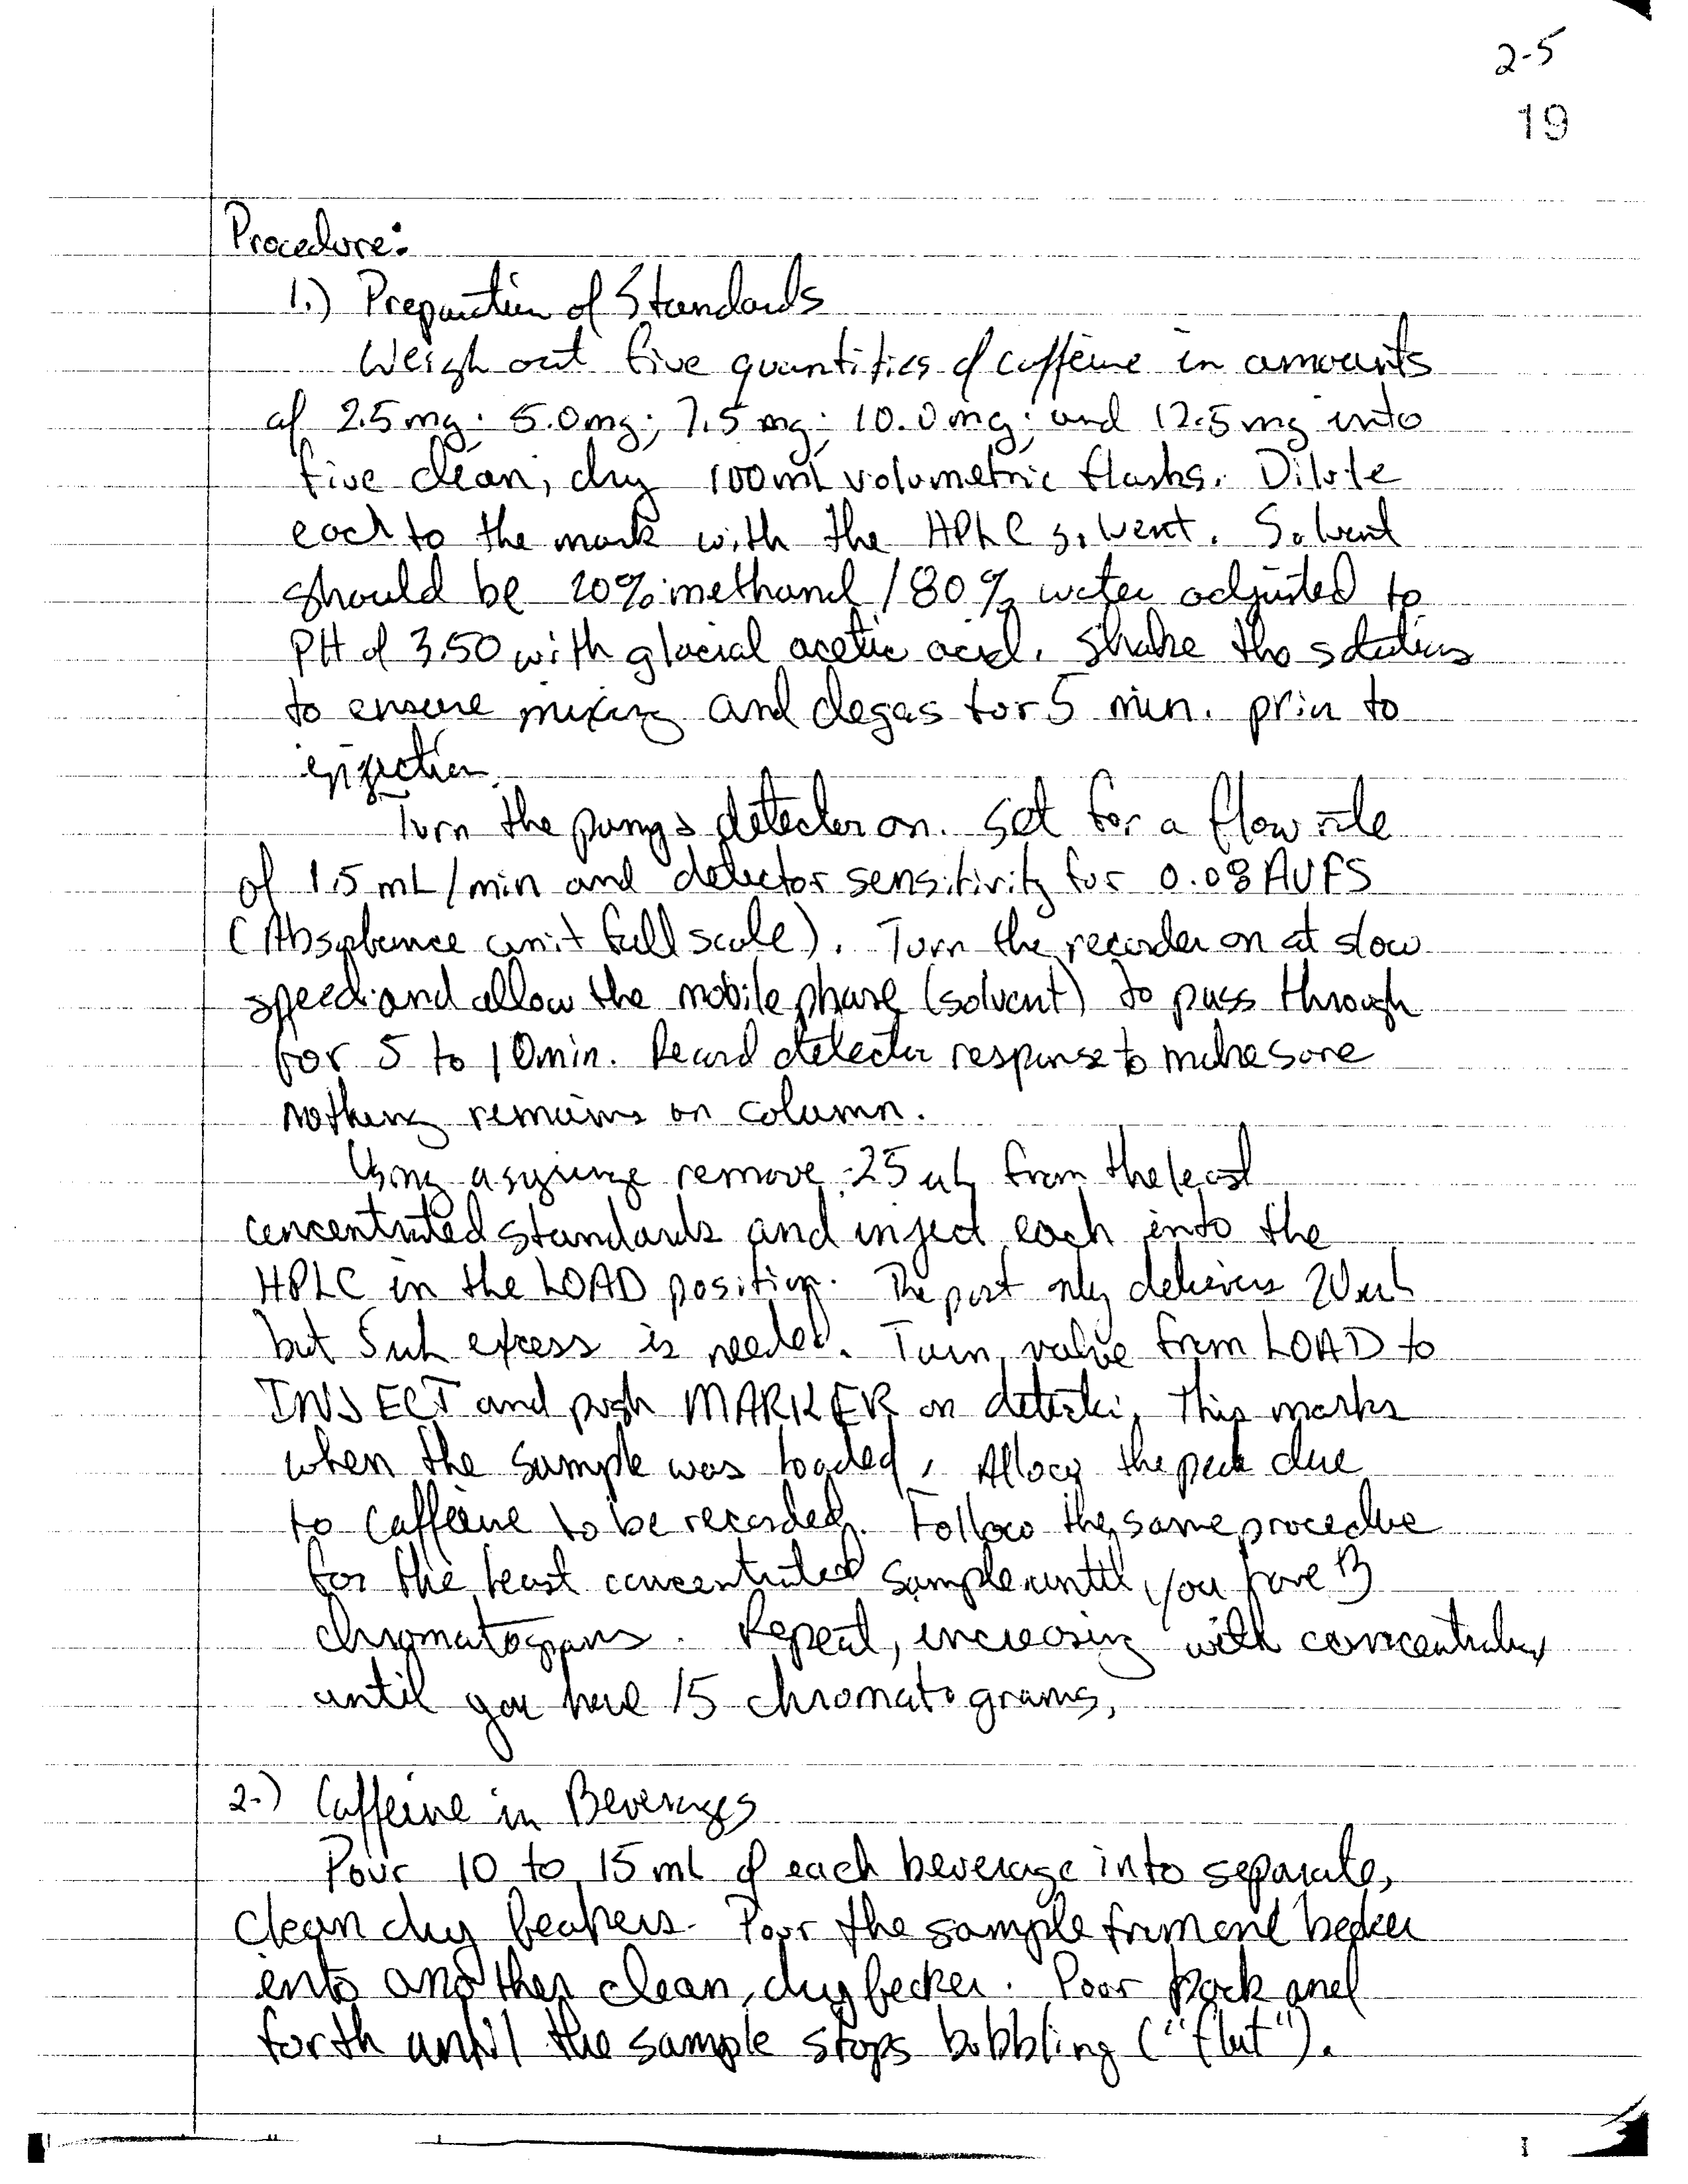 2-5
19
Procedure:
1.) Preparation of Standards
Weigh out five quantities of caffeine in amounts
of 2.5 mg; 5.0 mg; 7.5 mg; 10.0 mg; and 12.5 mg into
five clean, dry 100 mL volumetric flasks. Dilute
each to the mark with the HPLC solvent. Solvent
should be 20% methanol / 80% water adjusted to
PH of 3.50 with glacial acetic acid. Shake the solutions
to ensure mixing and degas for 5 min. prior to
injection.
Turn the pump & detector on. Set for a flow rate
of 1.5 mL/min and detector sensitivity for 0.08 AUFS
(Absorbance unit full scale). Turn the recorder on at slow
speed and allow the mobile phase (solvent) to pass through
for 5 to 10 min. Record detector response to make sure
nothing remains on column.
Using a syringe remove 25 uL from the least
concentrated standards and inject each into the
HPLC in the LOAD position. The port only delivers 20 uL
but 5 uL excess is needed. Turn valve from LOAD to
INJECT and push MARKER on detector. This marks
when the sample was loaded. Allow the peak due
to caffeine to be recorded. Follow the same procedure
for the least concentrated sample until you have 3
chromatograms. Repeat, increasing with concentration
until you have 15 chromatograms.
2.) Caffeine in Beverages
Pour 10 to 15 mL of each beverage into separate,
clean dry beakers. Pour the sample from one beaker
into another clean, dry becker. Poor back and
forth until the sample stops bubbling ("flat").